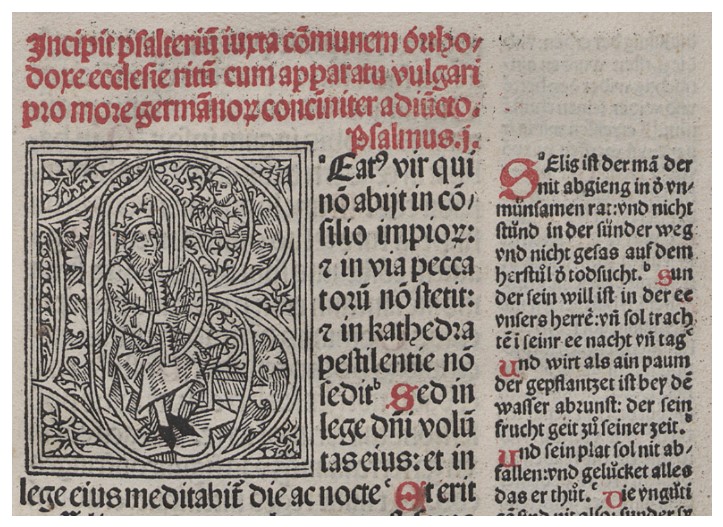 Incipit psalteriū iuxta cōmunem ortho⸗
doxe ecclesie ritū cum apparatu vulgari
pro more germānoꝝ conciniter adiūcto.
Psalmus.j.
ᵃEatꝰ vir qui
nō abijt in cō⸗
silio impioꝝ:
⁊ in via pecca
torū nō stetit:
⁊ in kathedra
pestilentie nō
seditᵇ Sed in
lege dn̄i volū
tas eius: et in
lege eius meditabit̄ die ac nocteᶜ Et erit
SᵃElig ist der mā der
nit abgieng in ō vn⸗
münsamen rat: vnd nicht
stůnd in der sünder weg
vnd nicht gesas auf dem
herstůl ō todsucht.ᵇ Sun
der sein will ist in der ee
vnsers herrē: vn̄ sol trach
tē i seinr ee nacht vn̄ tagᶜ
Und wirt als ain paum
der gepflantzet ist bey dē
wasser abrunst: der sein
frucht geit zů seiner zeit.ᵈ
Und sein plat sol nit ab⸗
fallen: vnd gelücket alles
das er thůt.ᵉ Die vngüti